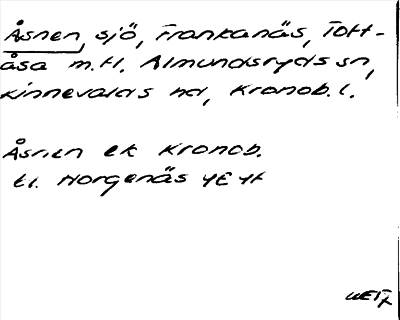 Åsnen, sjö, Frankanäs, Tott-
åsa m.fl. Almundsryds sn,
Kinnevalds hd, Kronob. l.
Åsnen ek Kronob.
tr. Horgenäs 4E 4f